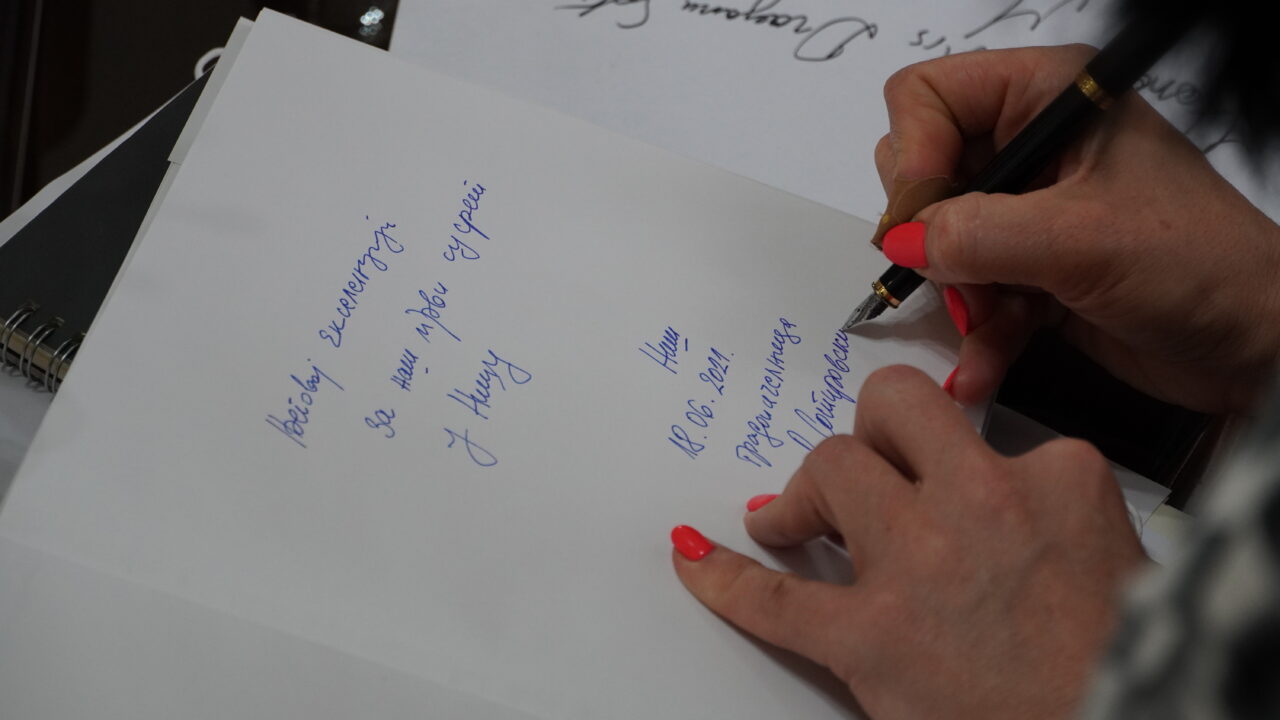 Његовој Екселенцији
за наш први сусрет
у Нишу
Ниш
18.06.2021.
Градоначелница
Сотировски
Dragana